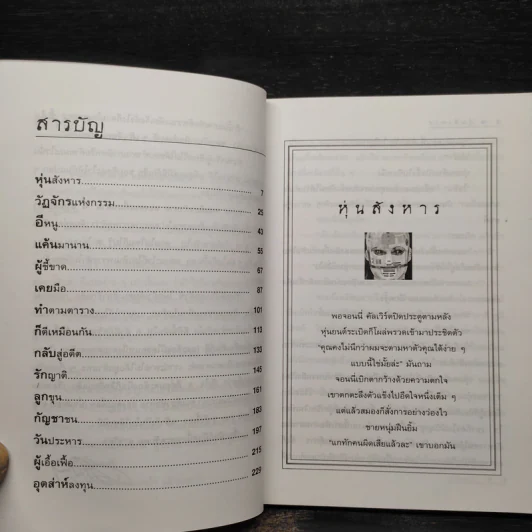 สารบัญ
หุ่นสังหาร 7
วัฏจักรแห่งกรรม 25
อีหนู 43
แค้นมานาน 55
ผู้ชี้ขาด 67
เคยมือ 87
ทำตามตาราง 101
ก็ดีเหมือนกัน 113
กลับสู่อดีต 133
รักญาติ 145
ลูกขุน 161
กัญชาชน 183
วันประหาร 197
ผู้เอื้อเฟื้อ 215
อุตส่าห์ลงทุน 229
หุ่นสังหาร
พอจอนนี่ คัลเวิร์ตปิดประตูตามหลัง
หุ่นยนต์ระเบิดก็โผล่พรวดเข้ามาประชิดตัว
"คุณคงไม่นึกว่าผมจะตามหาตัวคุณได้ง่าย ๆ
แบบนี้ใช่มั้ยล่ะ" มันถาม
จอนนี่เบิกตากว้างด้วยความตกใจ
เขาตกตะลึงตัวแข็งไปอึดใจหนึ่งเต็ม ๆ
แต่แล้วสมองก็สั่งการอย่างว่องไว
ชายหนุ่มฝืนยิ้ม
"แกทักคนผิดเสียแล้วละ" เขาบอกมัน